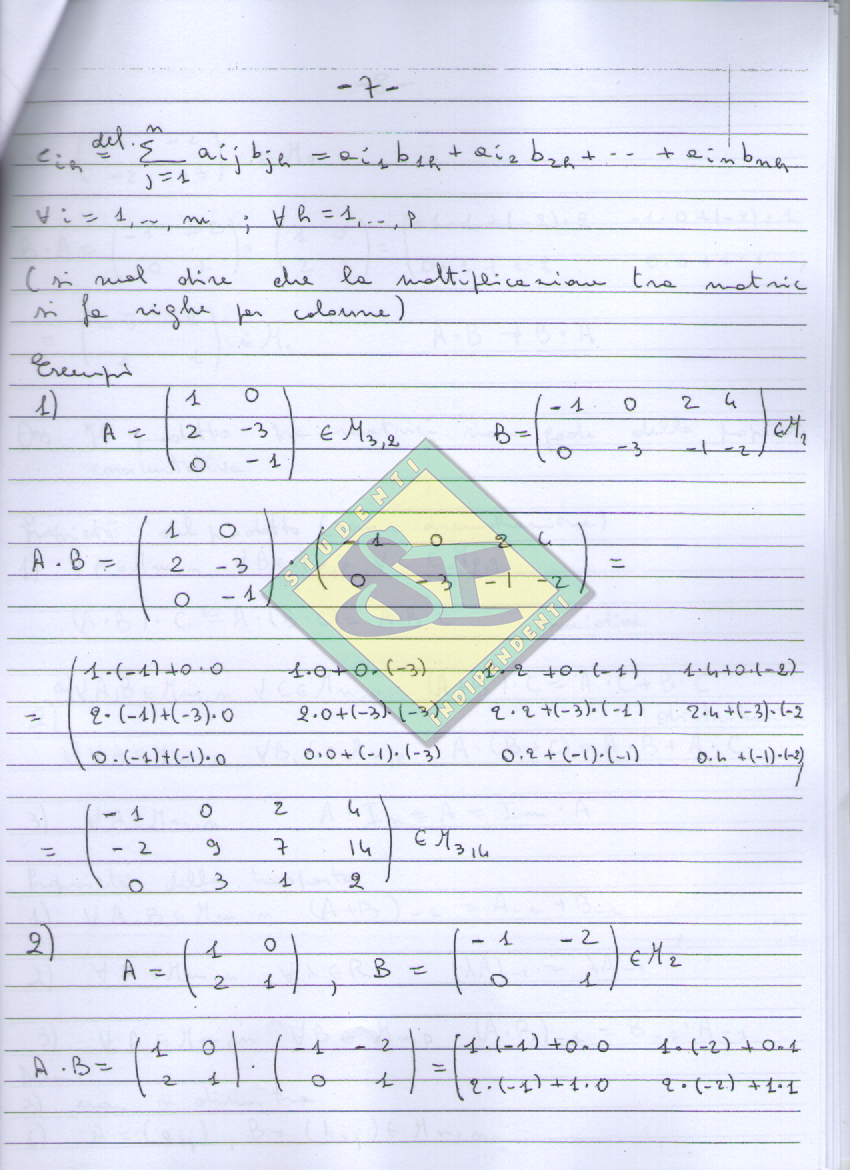 - 7 -
c_{ih} def.= \sum_{j=1}^{n} a_{ij} b_{jh} = a_{i1} b_{1h} + a_{i2} b_{2h} + ... + a_{in} b_{nh}
∀ i = 1, .., m ; ∀ h = 1, .., p
( si suol dire che la moltiplicazione tra matric
si fa righe per colonne )
Esempi
1) A = \begin{pmatrix} 1 & 0 \\ 2 & -3 \\ 0 & -1 \end{pmatrix} ∈ M_{3,2} B = \begin{pmatrix} -1 & 0 & 2 & 4 \\ 0 & -3 & -1 & -2 \end{pmatrix} ∈ M_2
A · B = \begin{pmatrix} 1 & 0 \\ 2 & -3 \\ 0 & -1 \end{pmatrix} · \begin{pmatrix} -1 & 0 & 2 & 4 \\ 0 & -3 & -1 & -2 \end{pmatrix} =
STUDENTI
SI
INDIPENDENTI
= \begin{pmatrix} 1·(-1)+0·0 & 1·0+0·(-3) & 1·2+0·(-1) & 1·4+0·(-2) \\ 2·(-1)+(-3)·0 & 2·0+(-3)·(-3) & 2·2+(-3)·(-1) & 2·4+(-3)·(-2 \\ 0·(-1)+(-1)·0 & 0·0+(-1)·(-3) & 0·2+(-1)·(-1) & 0·4+(-1)·(-2) \end{pmatrix}
= \begin{pmatrix} -1 & 0 & 2 & 4 \\ -2 & 9 & 7 & 14 \\ 0 & 3 & 1 & 2 \end{pmatrix} ∈ M_{3,4}
2) A = \begin{pmatrix} 1 & 0 \\ 2 & 1 \end{pmatrix} , B = \begin{pmatrix} -1 & -2 \\ 0 & 1 \end{pmatrix} ∈ M_2
A · B = \begin{pmatrix} 1 & 0 \\ 2 & 1 \end{pmatrix} · \begin{pmatrix} -1 & -2 \\ 0 & 1 \end{pmatrix} = \begin{pmatrix} 1·(-1)+0·0 & 1·(-2)+0·1 \\ 2·(-1)+1·0 & 2·(-2)+1·1